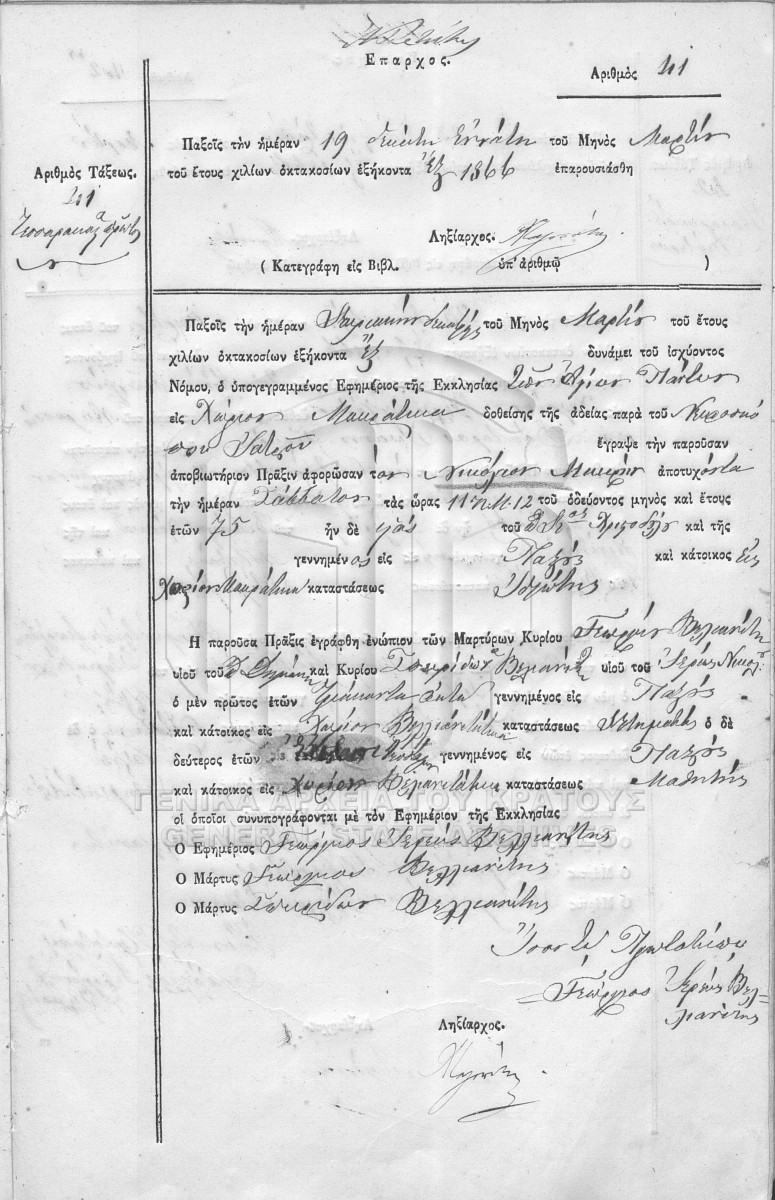 Επαρχος.
Αριθμὸς 41
Παξοῖς τὴν ἡμέραν 19 δεκάτη ἐννάτη τοῦ Μηνὸς Μαρτίου
τοῦ ἔτους χιλίων ὀκτακοσίων ἑξήκοντα ἓξ 1866 ἐπαρουσιάσθη
Ἀριθμὸς Τάξεως.
41
Ληξίαρχος.
( Κατεγράφη εἰς Βιβλ. ὑπ' ἀριθμῷ )
Παξοῖς τὴν ἡμέραν τοῦ Μηνὸς Μαρτίου τοῦ ἔτους
χιλίων ὀκτακοσίων ἑξήκοντα ἓξ δυνάμει τοῦ ἰσχύοντος
Νόμου, ὁ ὑπογεγραμμένος Ἐφημέριος τῆς Ἐκκλησίας τῶν Ἁγίων Πάντων
εἰς Χωρίον Μακράτικα δοθείσης τῆς ἀδείας παρὰ τοῦ
Ἰατροῦ ἔγραψε τὴν παροῦσαν
ἀποβιωτήριον Πρᾶξιν ἀφορῶσαν τὸν Νικόλαον Μακρῆν ἀποτυχόντα
τὴν ἡμέραν Σάββατον τὰς ὥρας 11 π.Μ. 12 τοῦ ὁδεύοντος μηνὸς καὶ ἔτους
ἐτῶν 75 ἦν δὲ υἱὸς τοῦ καὶ τῆς
γεννημένος εἰς Παξοὺς καὶ κάτοικος εἰς
Χωρίον Μακράτικα καταστάσεως
Ἡ παροῦσα Πρᾶξις ἐγράφθη ἐνώπιον τῶν Μαρτύρων Κυρίου Γεωργίου Βελιανίτη
υἱοῦ τοῦ καὶ Κυρίου Σπυρίδωνα Βελιανίτη υἱοῦ τοῦ Ἱερέως Νικολ.
ὁ μὲν πρῶτος ἐτῶν τριάκοντα ἑπτὰ γεννημένος εἰς Παξοὺς
καὶ κάτοικος εἰς Χωρίον Βελιανιτάτικα καταστάσεως Κτηματίας ὁ δὲ
δεύτερος ἐτῶν γεννημένος εἰς Παξοὺς
καὶ κάτοικος εἰς Χωρίον Βελιανιτάτικα καταστάσεως Μαθητής
οἱ ὁποῖοι συνυπογράφονται μὲ τὸν Ἐφημέριον τῆς Ἐκκλησίας
ΓΕΝΙΚΑ ΑΡΧΕΙΑ ΤΟΥ ΚΡΑΤΟΥΣ
GENERAL STATE ARCHIVES
Ὁ Ἐφημέριος Γεώργιος Ἱερεὺς Βελλιανίτης
Ὁ Μάρτυς Γεώργιος Βελλιανίτης
Ὁ Μάρτυς Σπυρίδων Βελλιανίτης
Ἴσον τῷ Πρωτοτύπῳ
Γεώργιος Ἱερεὺς Βελ-
λιανίτης
Ληξίαρχος.